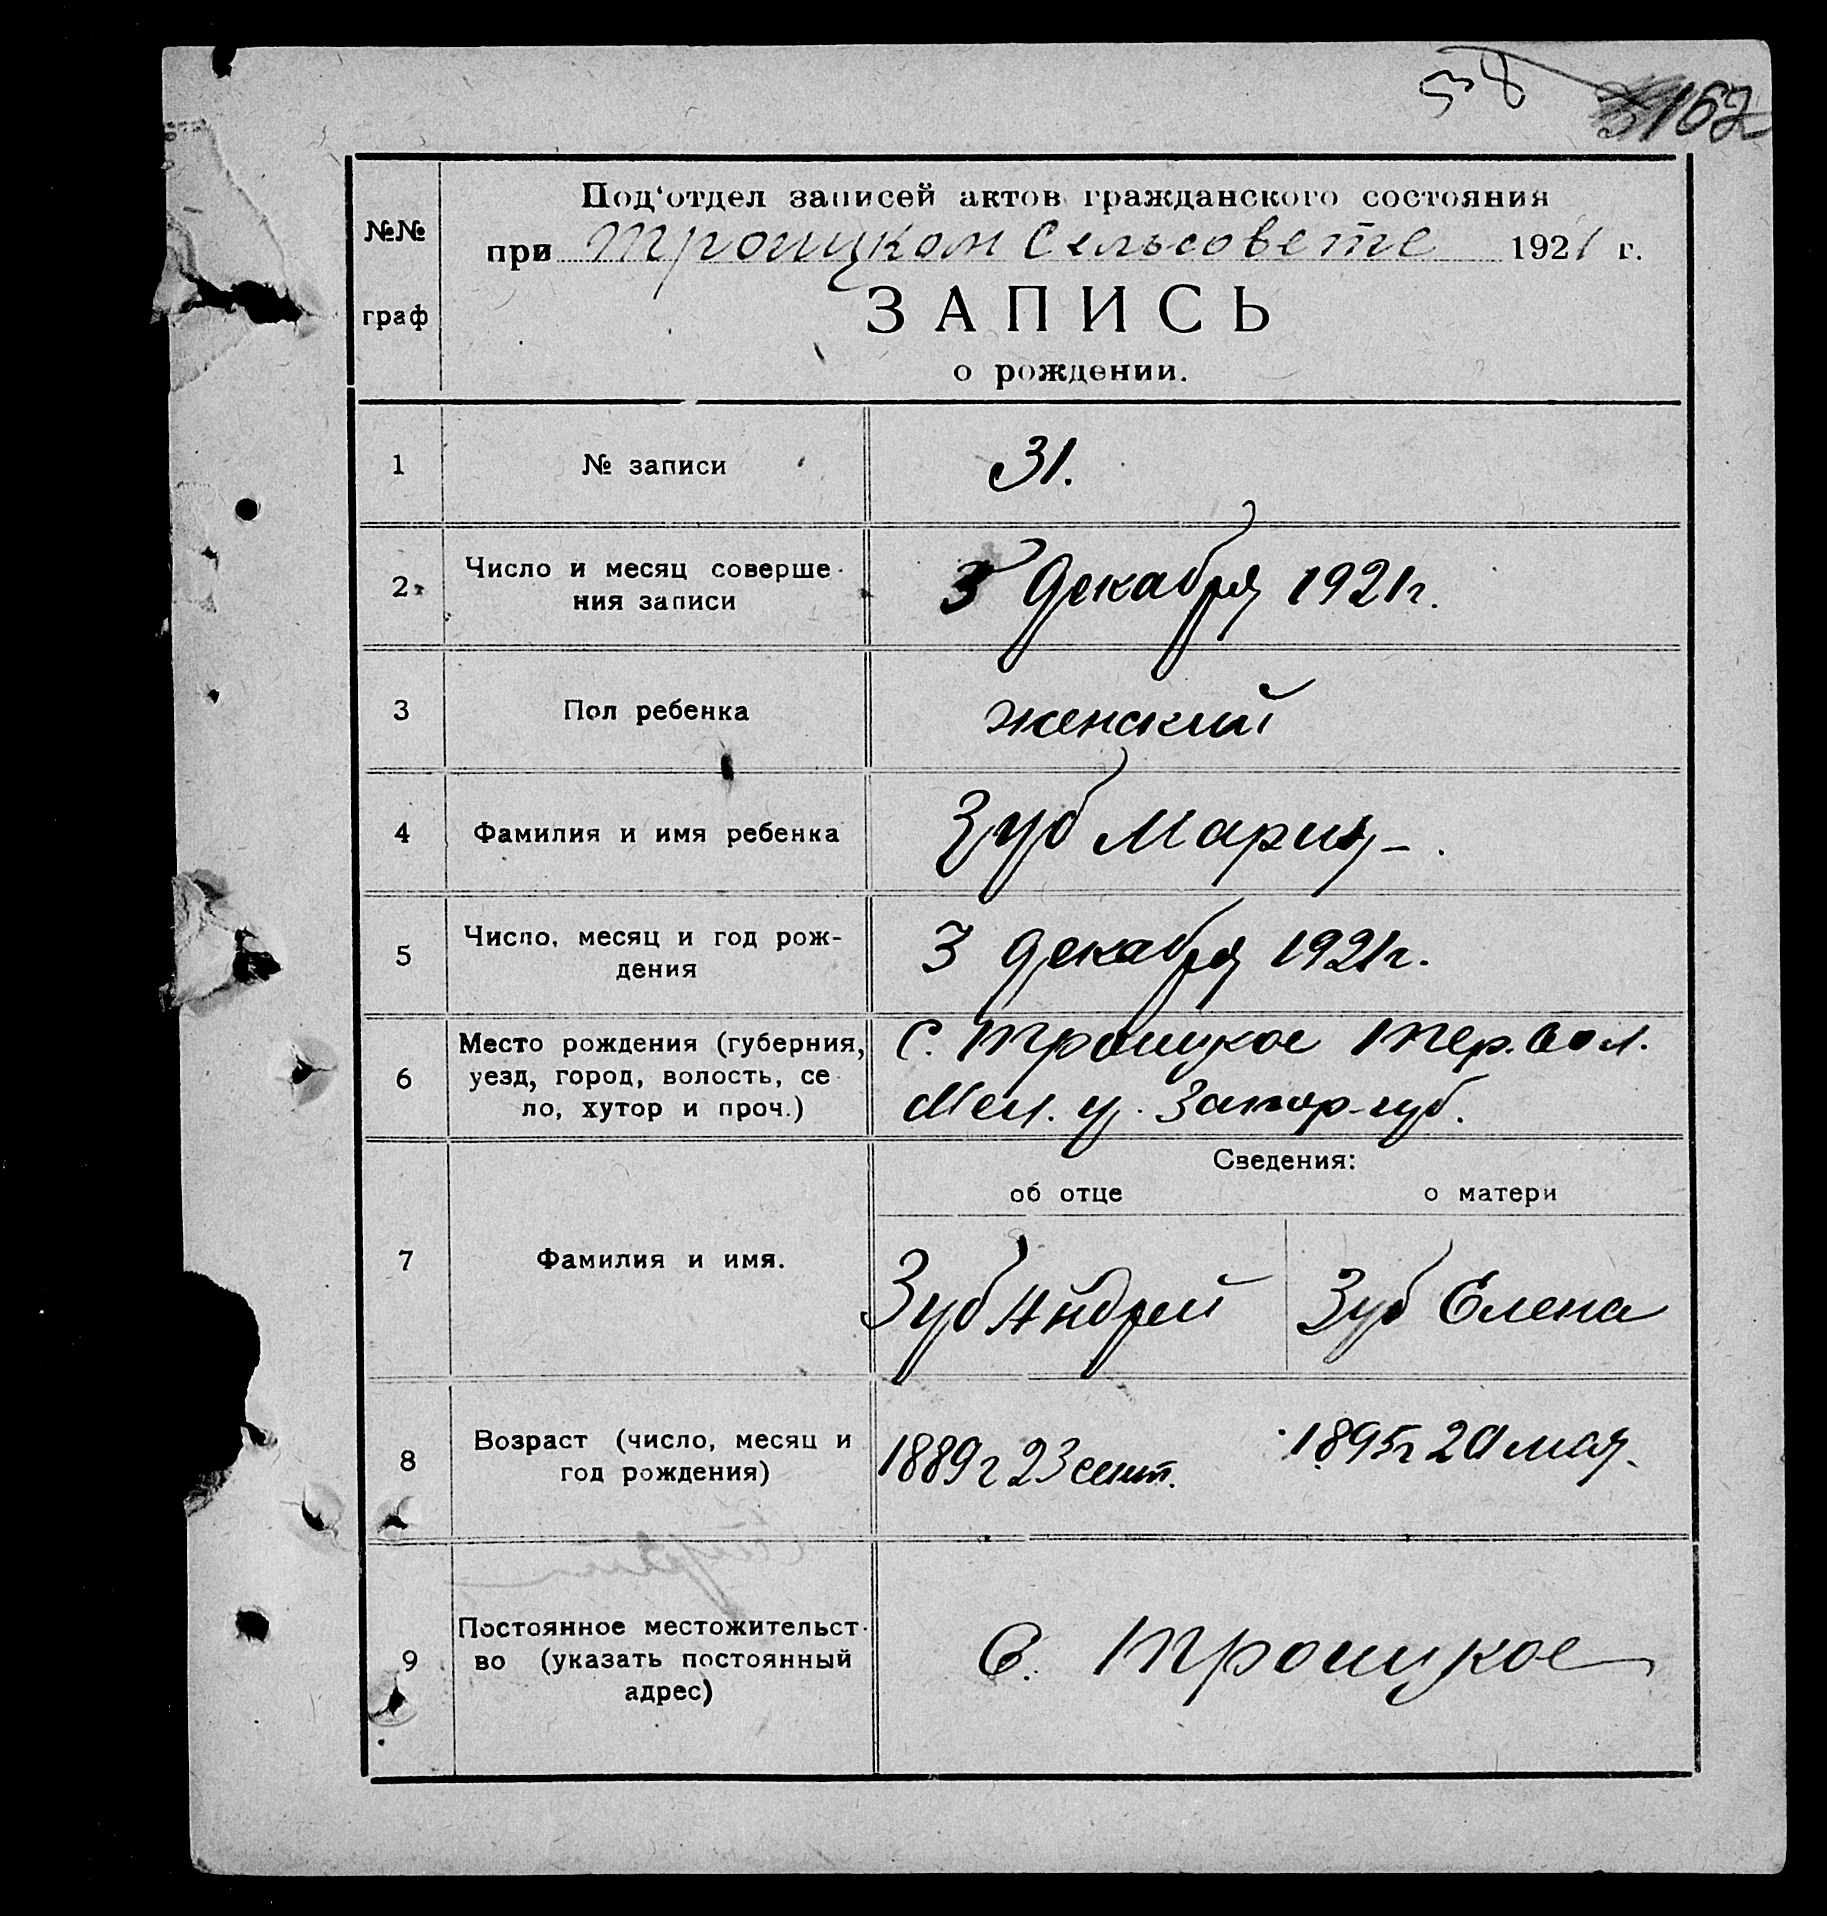 58
162
Под‘отдел записей актов гражданского состояния
№№
при Троицком Сельсовете 1921 г.
граф
ЗАПИСЬ
о рождении.
1 № записи 31.
2 Число и месяц соверше-
ния записи
3 Декабря 1921 г.
3 Пол ребенка женский
4 Фамилия и имя ребенка Зуб Мария
5 Число, месяц и год рож-
дения
3 декабря 1921 г.
6 Место рождения (губерния,
уезд, город, волость, се
ло, хутор и проч.)
С. Троицкое Тер. вол.
Мел. у. Запор. губ.
Сведения:
об отце о матери
7 Фамилия и имя. Зуб Андрей Зуб Елена
8 Возраст (число, месяц и
год рождения)
1889 г 23 сент. 1895 г 20 мая.
9 Постоянное местожительст-
во (указать постоянный
адрес)
С. Троицкое